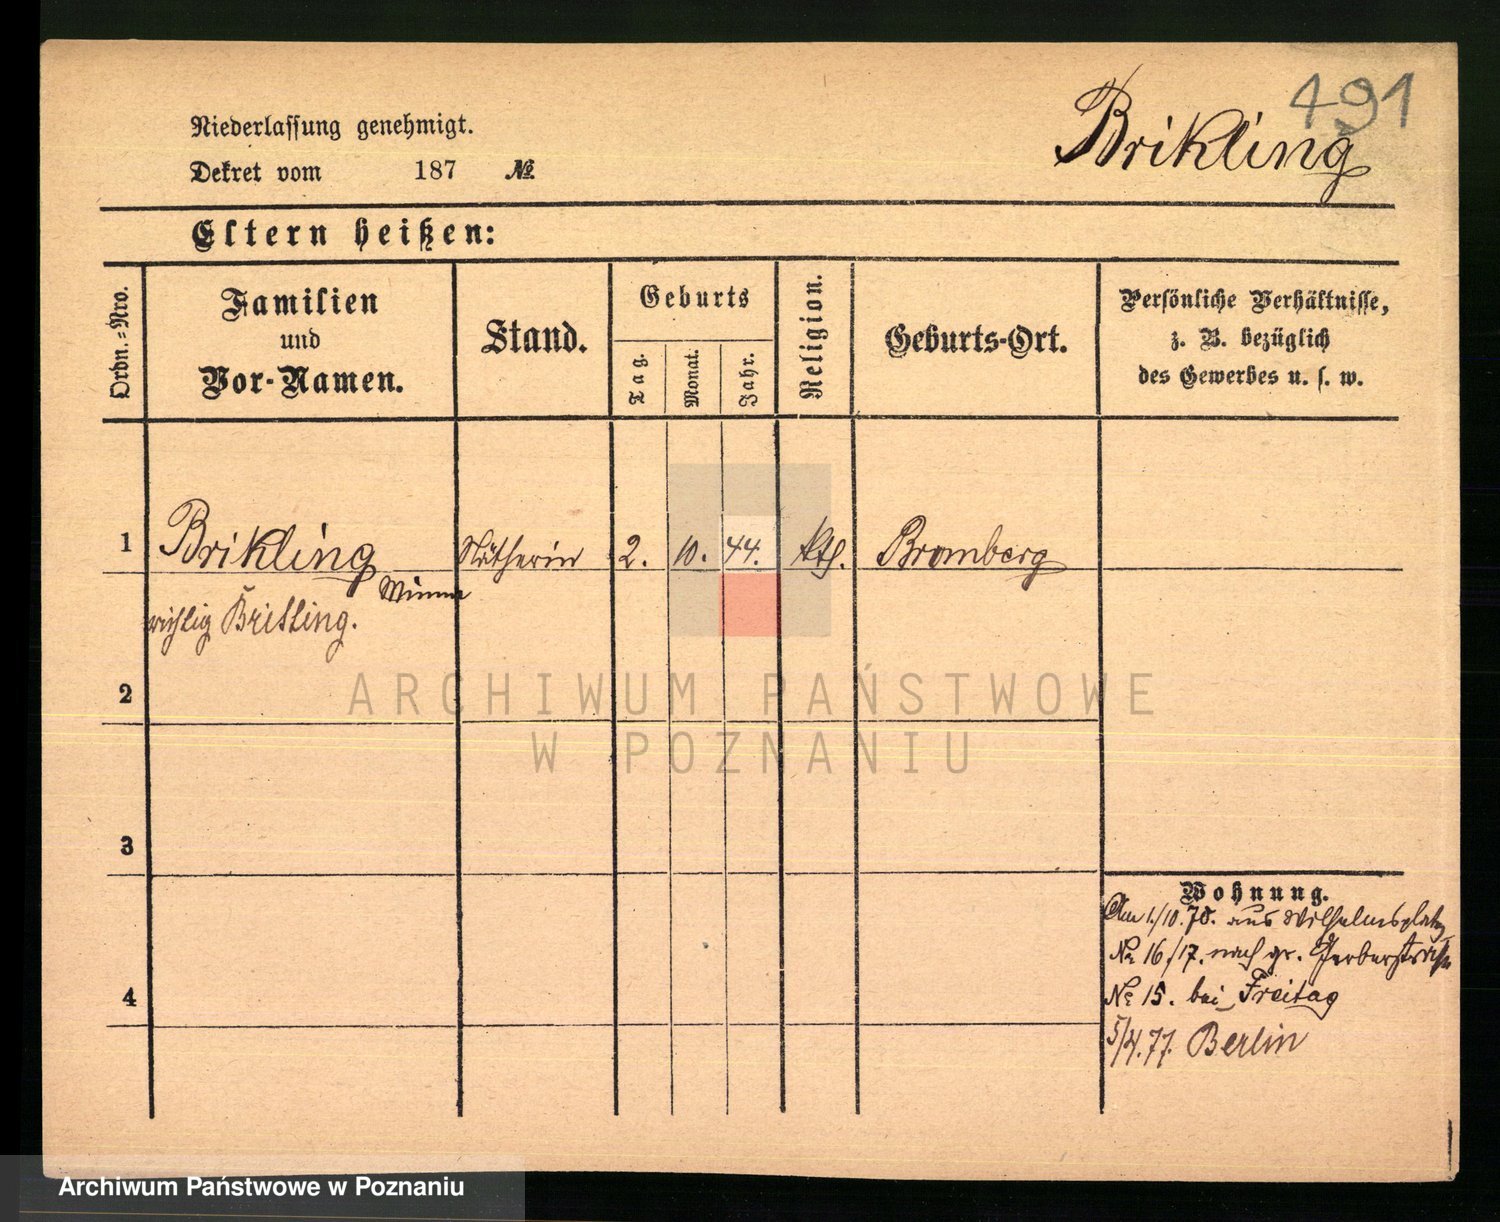 491
Brikling
Niederlassung genehmigt.
Dekret vom 187 №
Eltern heißen:
Ordn.=Nro.
Familien
und
Vor-Namen.
Stand.
Geburts
Tag.
Monat.
Jahr.
Religion.
Geburts-Ort.
Persönliche Verhältnisse,
z. B. bezüglich
des Gewerbes u. s. w.
1 Brikling Nätherin 2. 10. 44. kth. Bromberg
Minna
richtig Brisling.
2
3
4
Wohnung.
Am 1./10. 78. aus Wilhelmsplatz
№ 16/17. nach gr. Gerberstraße
№ 15. bei Freitag
5/4. 77. Berlin
ARCHIWUM PAŃSTWOWE
W POZNANIU
Archiwum Państwowe w Poznaniu